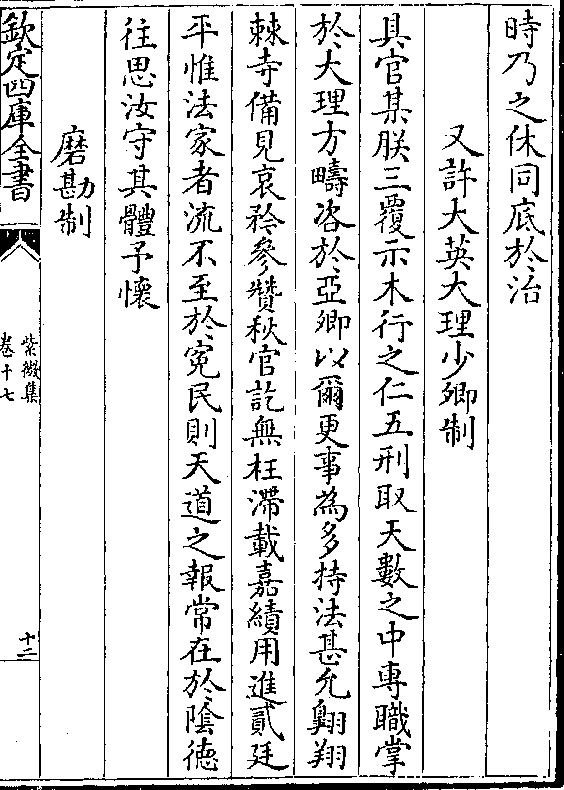 時乃之休同底於治
又許大英大理少卿制
具官某朕三覆示木行之仁五刑取天數之中專職掌
於大理方疇咨於亞卿以爾更事為多持法甚允翺翔
棘寺備見哀矜參贊秋官訖無枉滯載嘉績用進貳廷
平惟法家者流不至於寃民則天道之報常在於隂德
往思汝守其體予懷
磨勘制
欽定四庫全書
紫微集
卷十七
十二